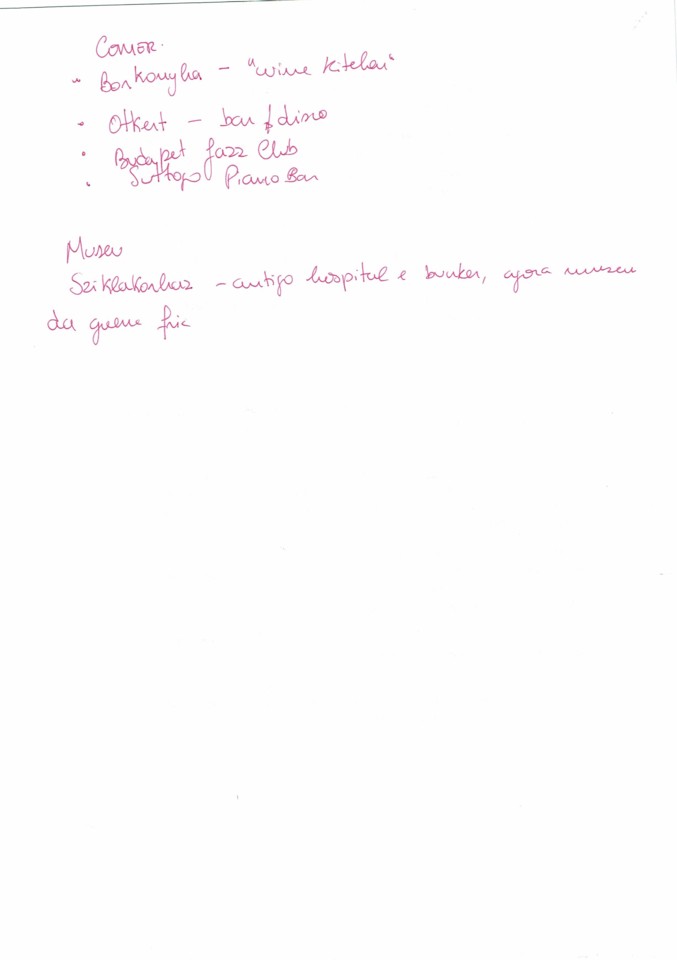 COMER.
• Borkonyha – "wine kitchen"
• Otkert – bar & disco
• Budapet Jazz Club
• Suttogo Piano Bar
Museu
Sziklakorhaz – antigo hospital e bunker, agora museu
da guerra fria